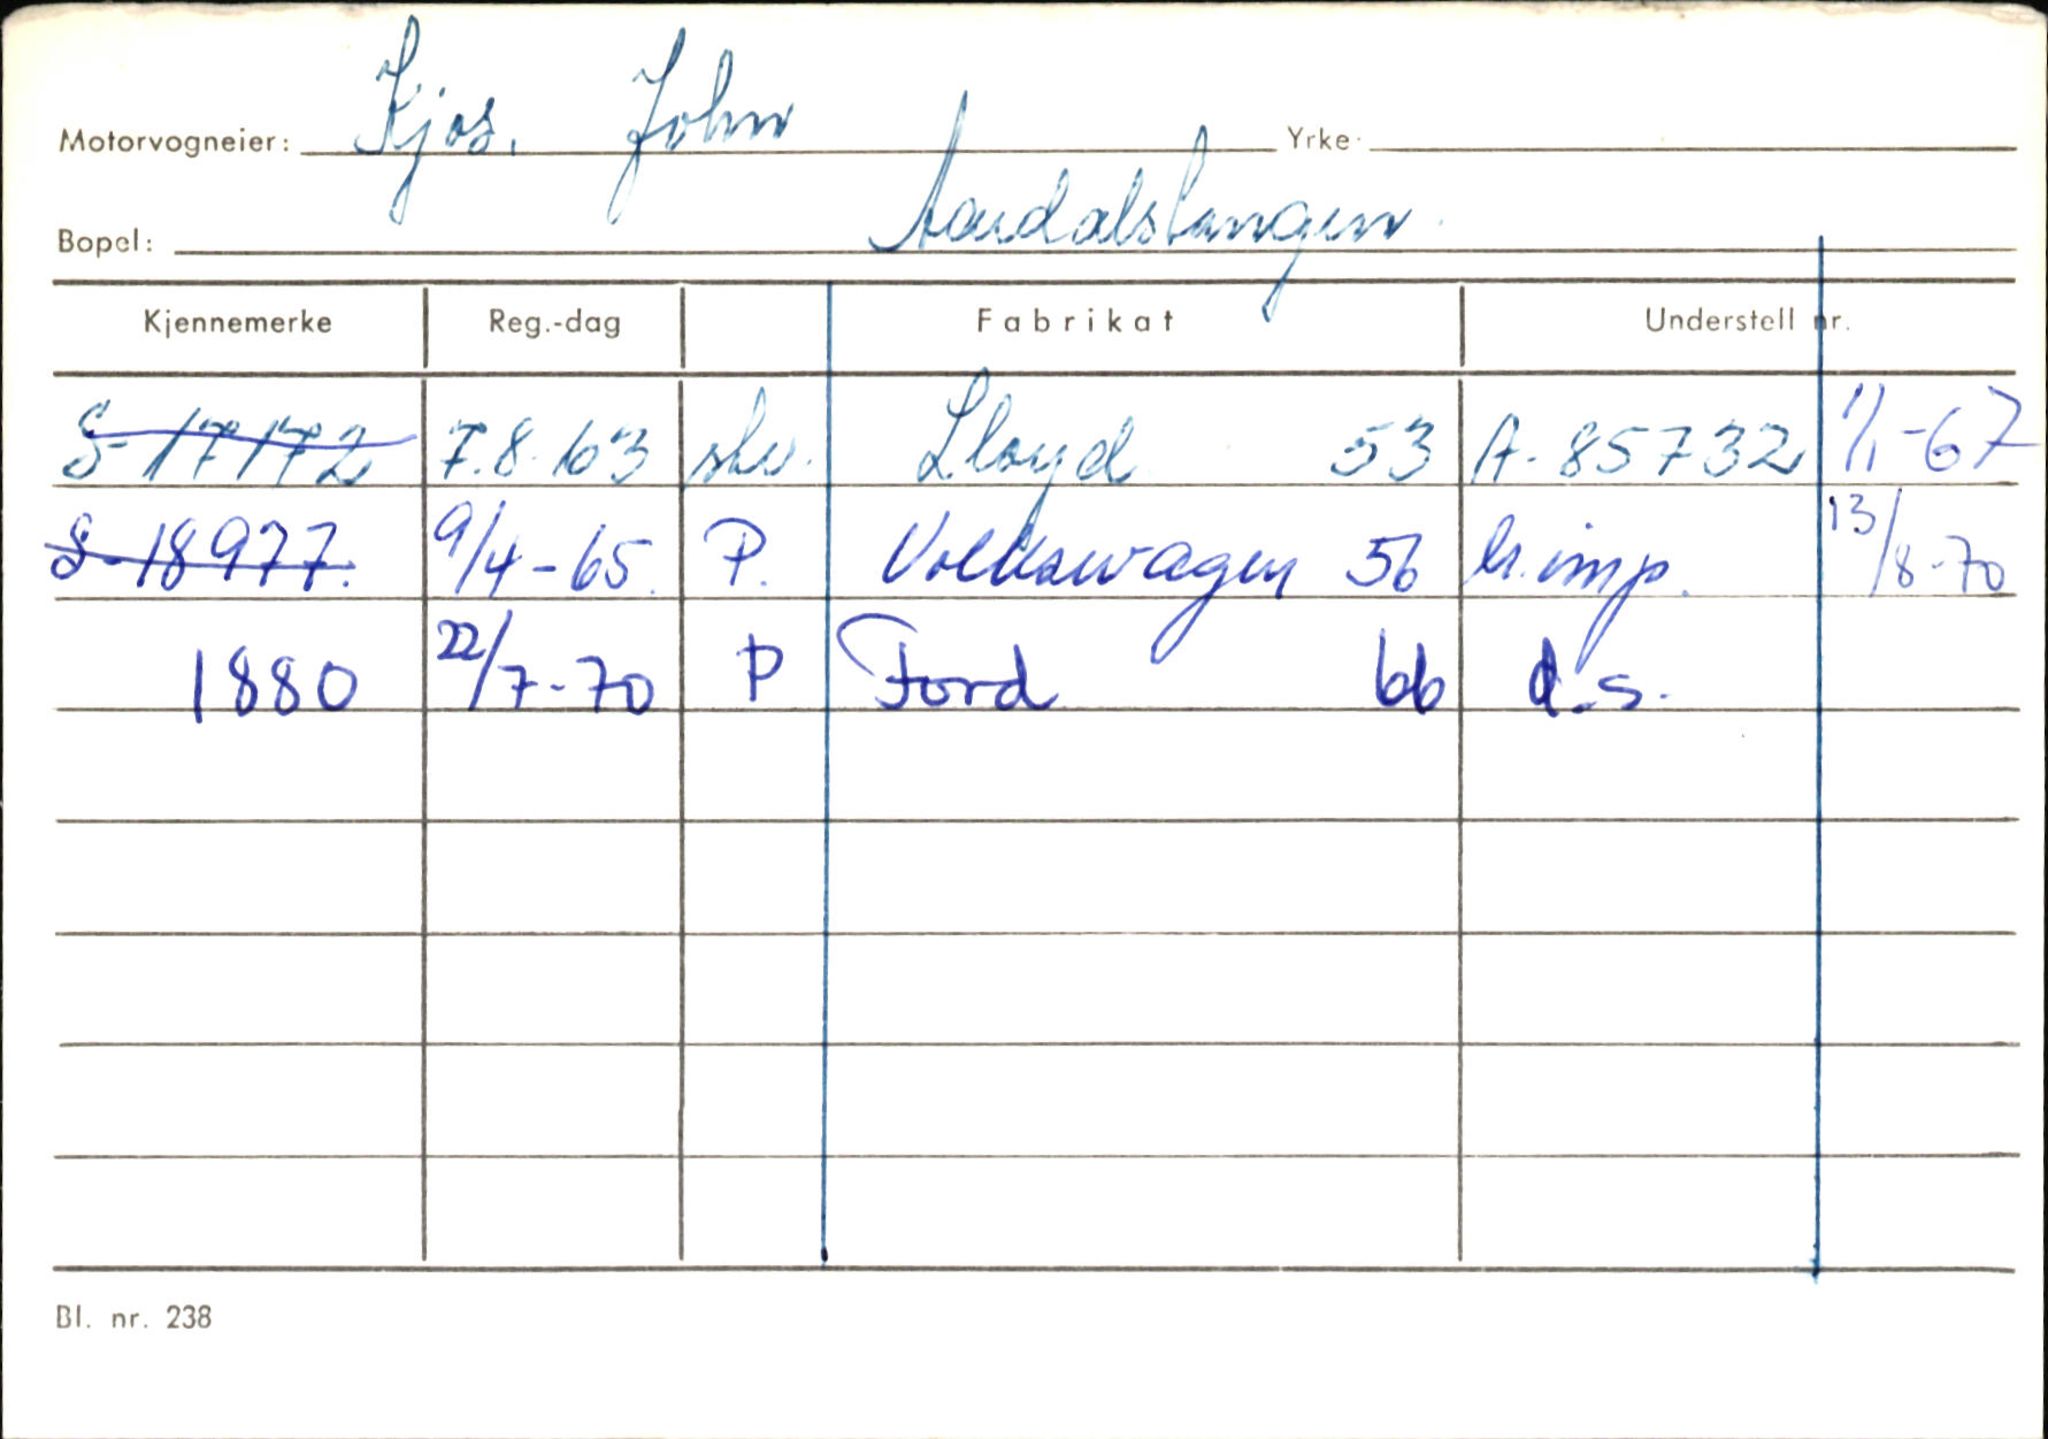 Motorvogneier: Kjos, John Yrke:
Bopel: Aardalstangen
Kjennemerke Reg.-dag Fabrikat Understell nr.
S-17172 7.8.63 stv. Lloyd 53 A-85732 1/1-67
S-18977. 9/4-65. P. Volkswagen 56 br. imp. 13/8-70
1880 22/7-70 P Ford 66 d.s.
Bl. nr. 238